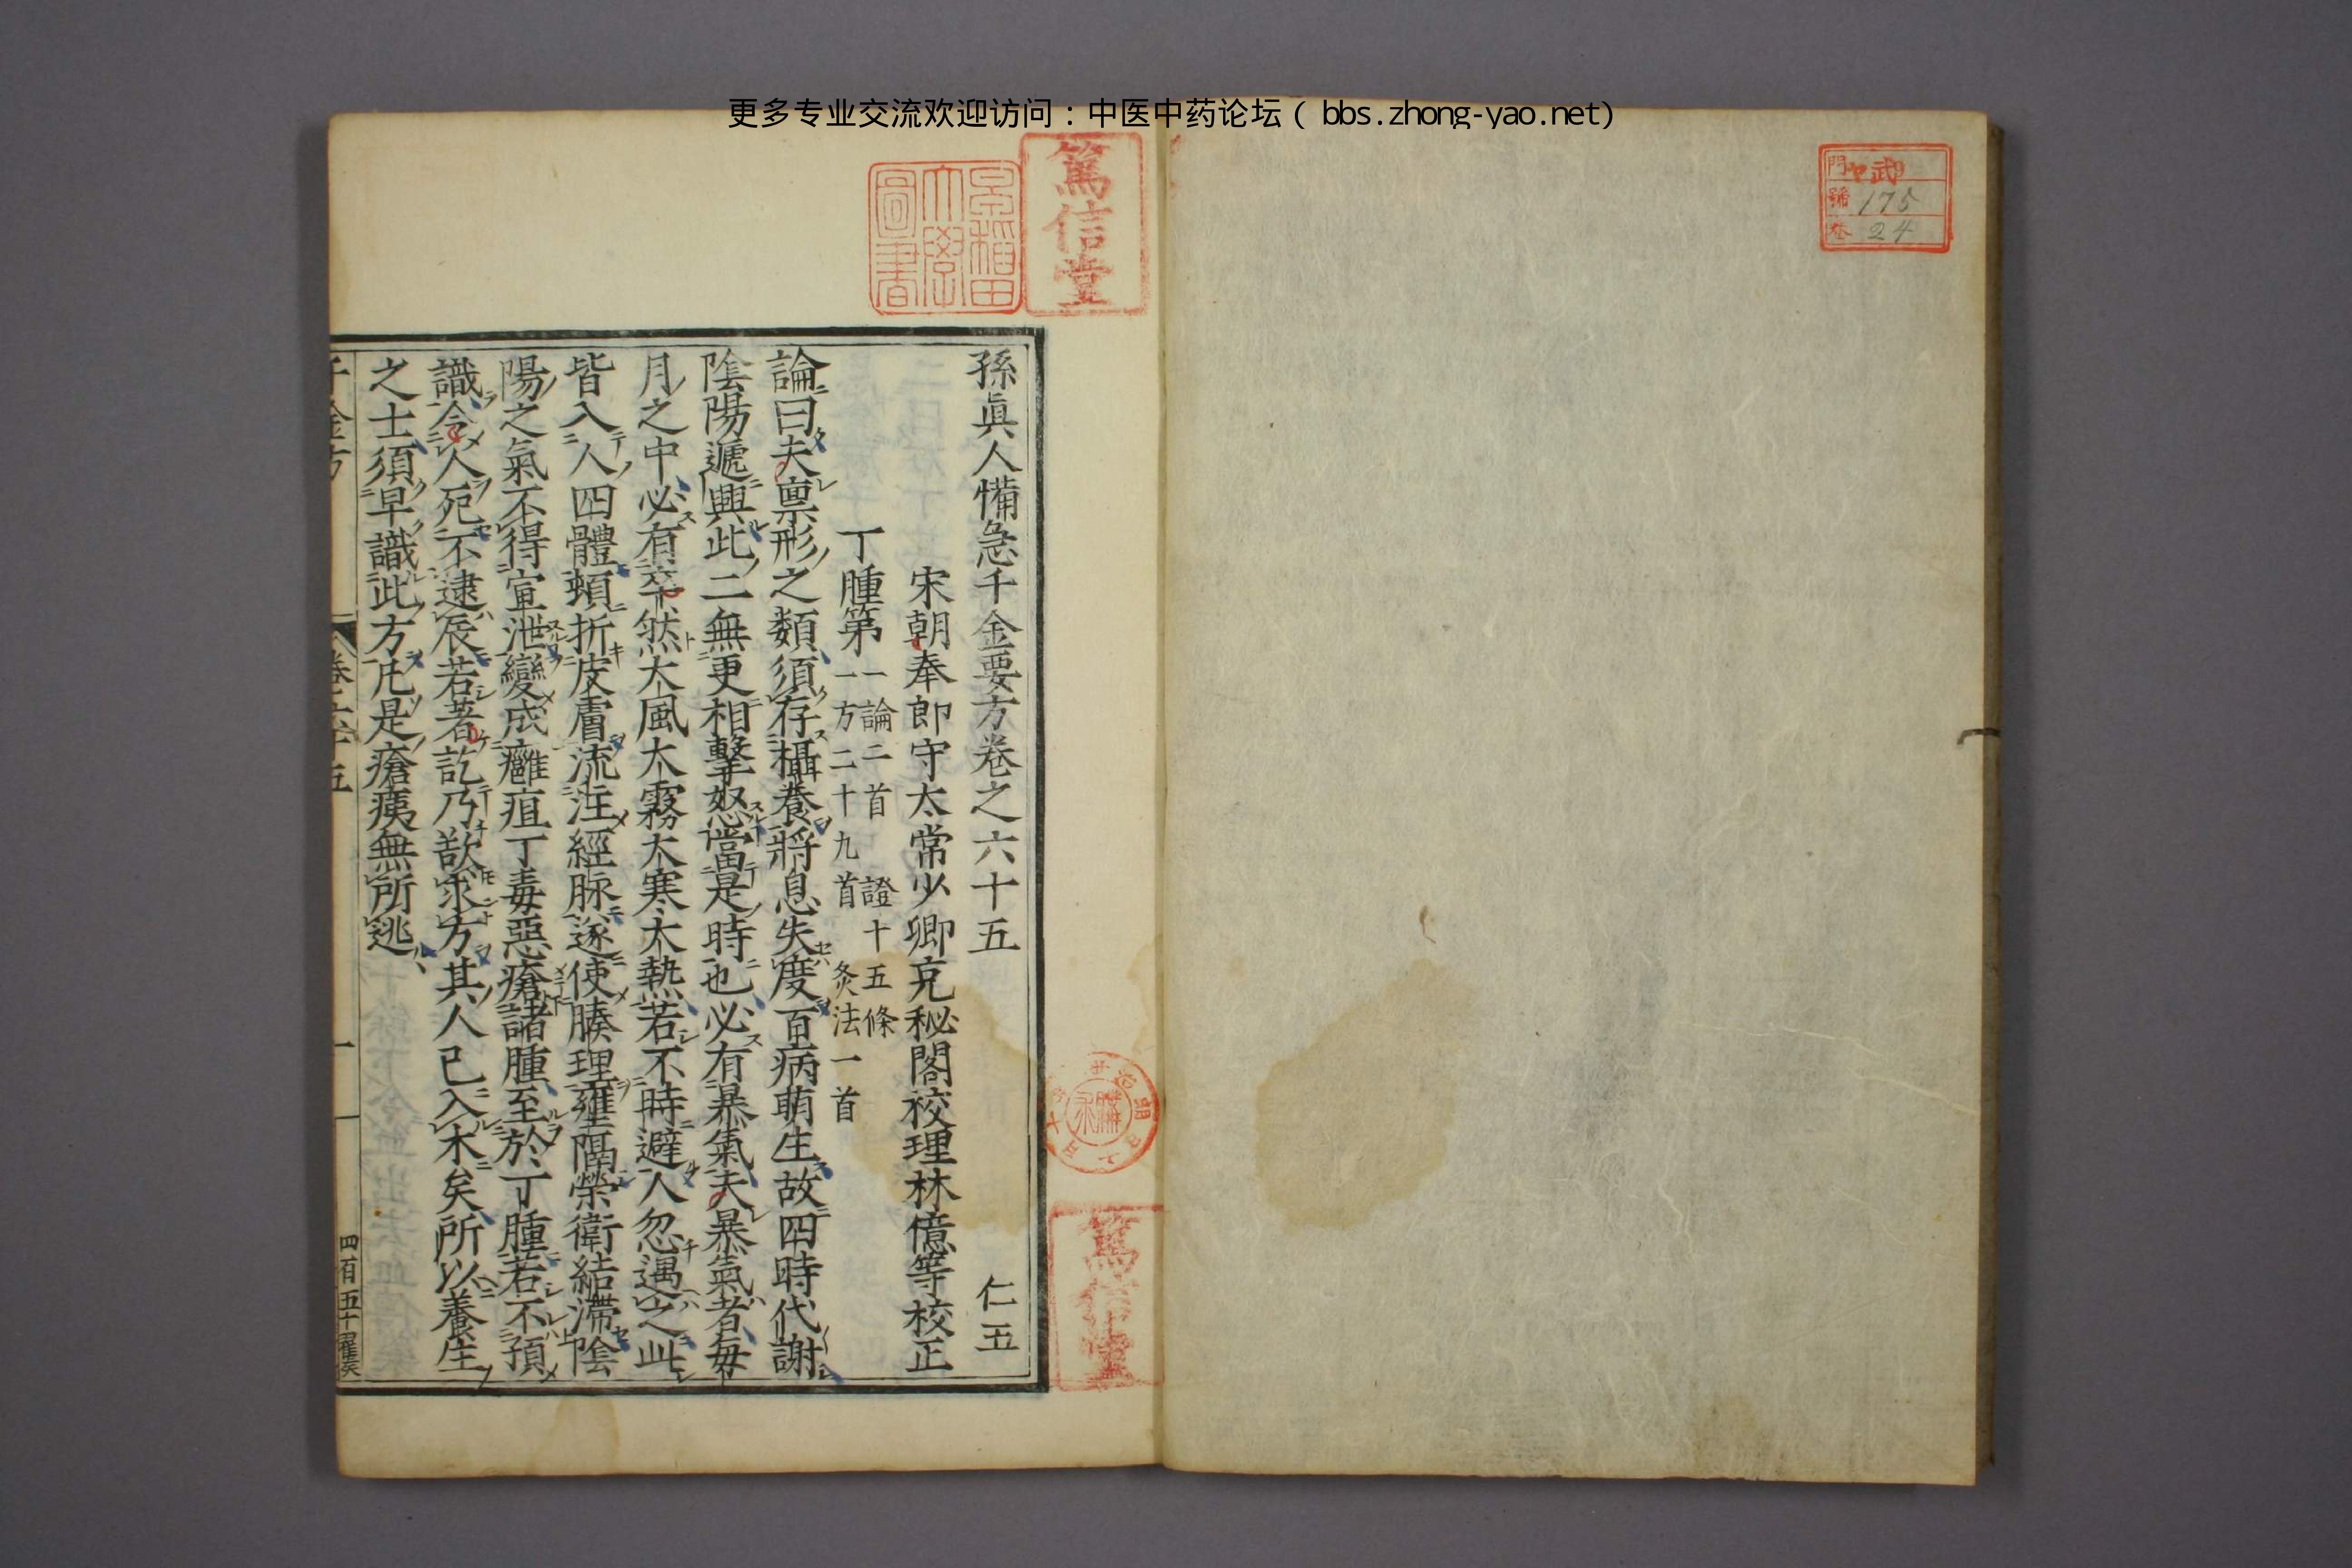 更多专业交流欢迎访问：中医中药论坛（bbs.zhong-yao.net）
門
號 175
卷 24
篤信堂
早稻田大學圖書
孫眞人備急千金要方卷之六十五 仁五
宋朝奉郎守太常少卿充秘閣校理林億等校正
丁腫第一 論二首 證十五條
方二十九首 灸法一首
論曰夫禀形之類須存攝養將息失度百病萌生故四時代謝
陰陽遞興此二無更相擊怒當是時也必有暴氣夫暴氣者每
月之中必有卒然大風大霧大寒大熱若不時避人忽遇之此
皆入人四體頓折皮膚流注經脉遂使腠理壅隔榮衛結滯陰
陽之氣不得宣泄變成癰疽丁毒惡瘡諸腫至於丁腫若不預
識令人死不逮辰若著訖乃欲求方其人已入木矣所以養生
之士須早識此方凡是瘡痍無所逃
千金方 卷六十五 一
四百五十
篤信堂